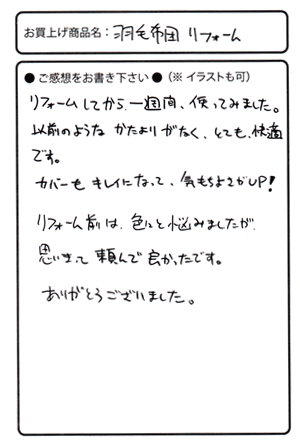 お買上げ商品名：羽毛布団 リフォーム
● ご感想をお書き下さい ●（※ イラストも可）
リフォームしてから、一週間、使ってみました。
以前のような かたよりがなく、とても、快適
です。
カバーも キレイになって、気もちよさがUP!
リフォーム前は、色々と悩みましたが、
思いきって 頼んで 良かったです。
ありがとうございました。